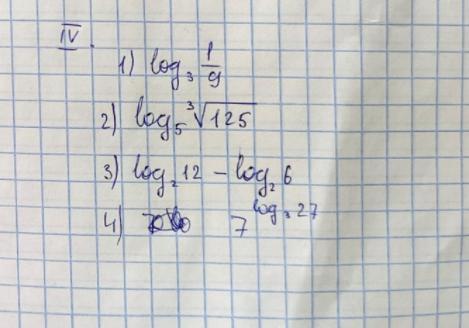 IV.
1) log₃ 1/9
2) log₅ ³√125
3) log₂ 12 - log₂ 6
4) 7^log₃ 27